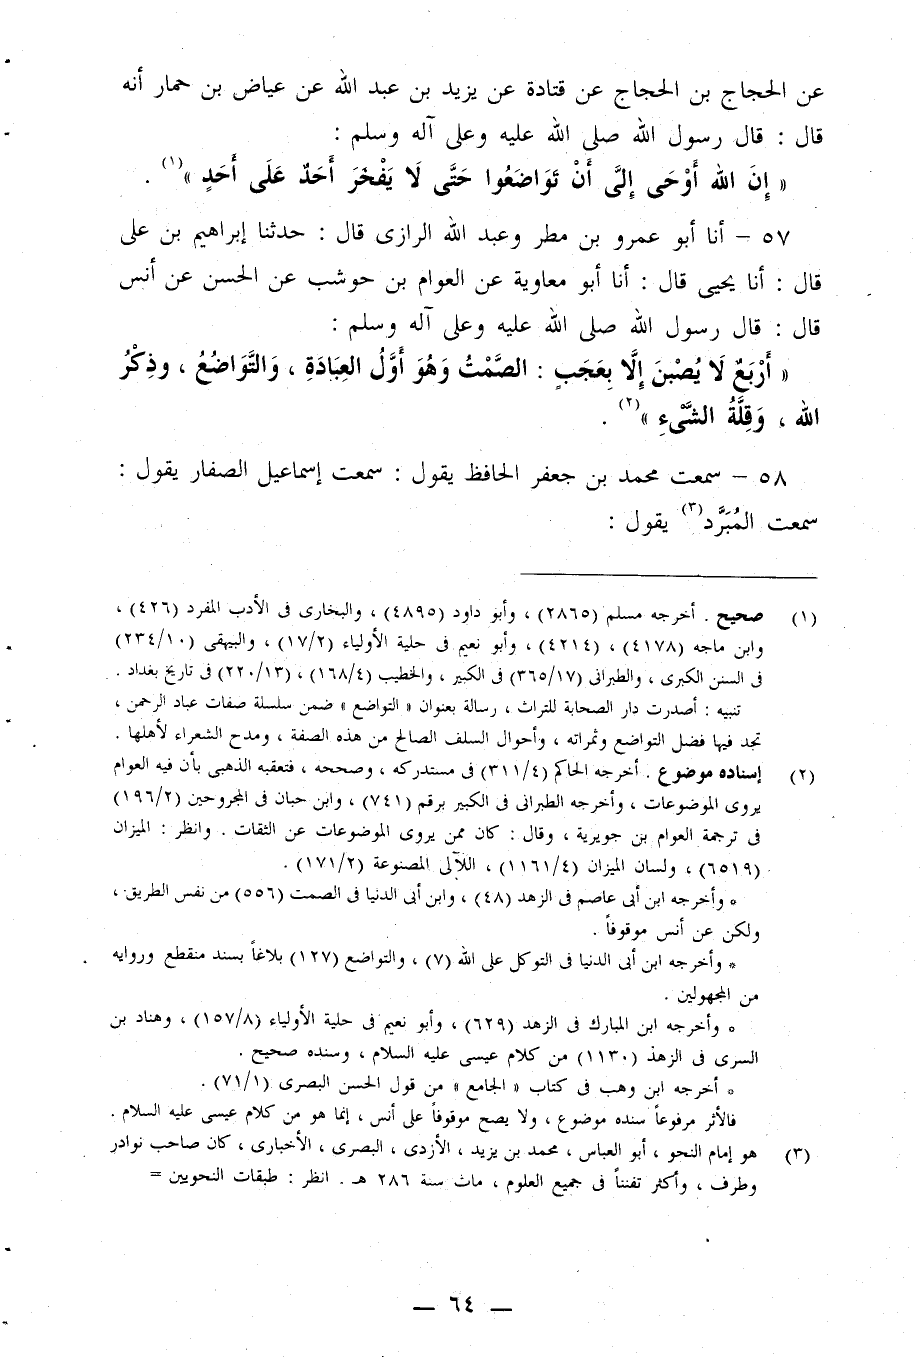 عن الحجاج بن الحجاج عن قتادة عن يزيد بن عبد الله عن عياض بن حمار أنه
قال : قال رسول الله صلى الله عليه وعلى آله وسلم :
« إِنَ الله أَوْحَى إِلىَّ أَنْ تَوَاضَعُوا حَتَّى لَا يَفْخَرَ أَحَدٌ عَلَى أَحَدٍ »(١) .
٥٧ – أنا أبو عمرو بن مطر وعبد الله الرازى قال : حدثنا إبراهيم بن على
قال : أنا يحيى قال : أنا أبو معاوية عن العوام بن حوشب عن الحسن عن أنس
قال : قال رسول الله صلى الله عليه وعلى آله وسلم :
« أَرْبَعٌ لَا يُصْبْنَ إِلَّا بِعَجَبٍ : الصَّمْتُ وَهُوَ أَوَّلُ العِبَادَةِ ، وَالتَّوَاضُعُ ، وذِكْرُ
الله ، وَقِلَّةُ الشَّىْءِ »(٢) .
٥٨ – سمعت محمد بن جعفر الحافظ يقول : سمعت إسماعيل الصفار يقول :
سمعت المُبَرَّد(٣) يقول :
(١) صحيح . أخرجه مسلم (٢٨٦٥) ، وأبو داود (٤٨٩٥) ، والبخارى فى الأدب المفرد (٤٢٦) ،
وابن ماجه (٤١٧٨) ، (٤٢١٤) ، وأبو نعيم فى حلية الأولياء (١٧/٢) ، والبيهقى (٢٣٤/١٠)
فى السنن الكبرى ، والطبرانى (٣٦٥/١٧) فى الكبير ، والخطيب (١٦٨/٤) ، (٢٢٠/١٣) فى تاريخ بغداد .
تنبيه : أصدرت دار الصحابة للتراث ، رسالة بعنوان « التواضع » ضمن سلسلة صفات عباد الرحمن ،
تجد فيها فضل التواضع وثمراته ، وأحوال السلف الصالح من هذه الصفة ، ومدح الشعراء لأهلها .
(٢) إسناده موضوع . أخرجه الحاكم (٣١١/٤) فى مستدركه ، وصححه ، فتعقبه الذهبى بأن فيه العوام
يروى الموضوعات ، وأخرجه الطبرانى فى الكبير برقم (٧٤١) ، وابن حبان فى المجروحين (١٩٦/٢)
فى ترجمة العوام بن جويرية ، وقال : كان ممن يروى الموضوعات عن الثقات . وانظر : الميزان
(٦٥١٩) ، ولسان الميزان (١١٦١/٤) ، اللآلى المصنوعة (١٧١/٢) .
* وأخرجه ابن أبى عاصم فى الزهد (٤٨) ، وابن أبى الدنيا فى الصمت (٥٥٦) من نفس الطريق ،
ولكن عن أنس موقوفاً .
* وأخرجه ابن أبى الدنيا فى التوكل على الله (٧) ، والتواضع (١٢٧) بلاغاً بسند منقطع وروايه
من المجهولين .
* وأخرجه ابن المبارك فى الزهد (٦٢٩) ، وأبو نعيم فى حلية الأولياء (١٥٧/٨) ، وهناد بن
السرى فى الزهذ (١١٣٠) من كلام عيسى عليه السلام ، وسنده صحيح .
* أخرجه ابن وهب فى كتاب « الجامع » من قول الحسن البصرى (٧١/١) .
فالأثر مرفوعاً سنده موضوع ، ولا يصح موقوفاً على أنس ، إنما هو من كلام عيسى عليه السلام .
(٣) هو إمام النحو ، أبو العباس ، محمد بن يزيد ، الأزدى ، البصرى ، الأخبارى ، كان صاحب نوادر
وطرف ، وأكثر تفنناً فى جميع العلوم ، مات سنة ٢٨٦ هـ . انظر : طبقات النحويين =
— ٦٤ —